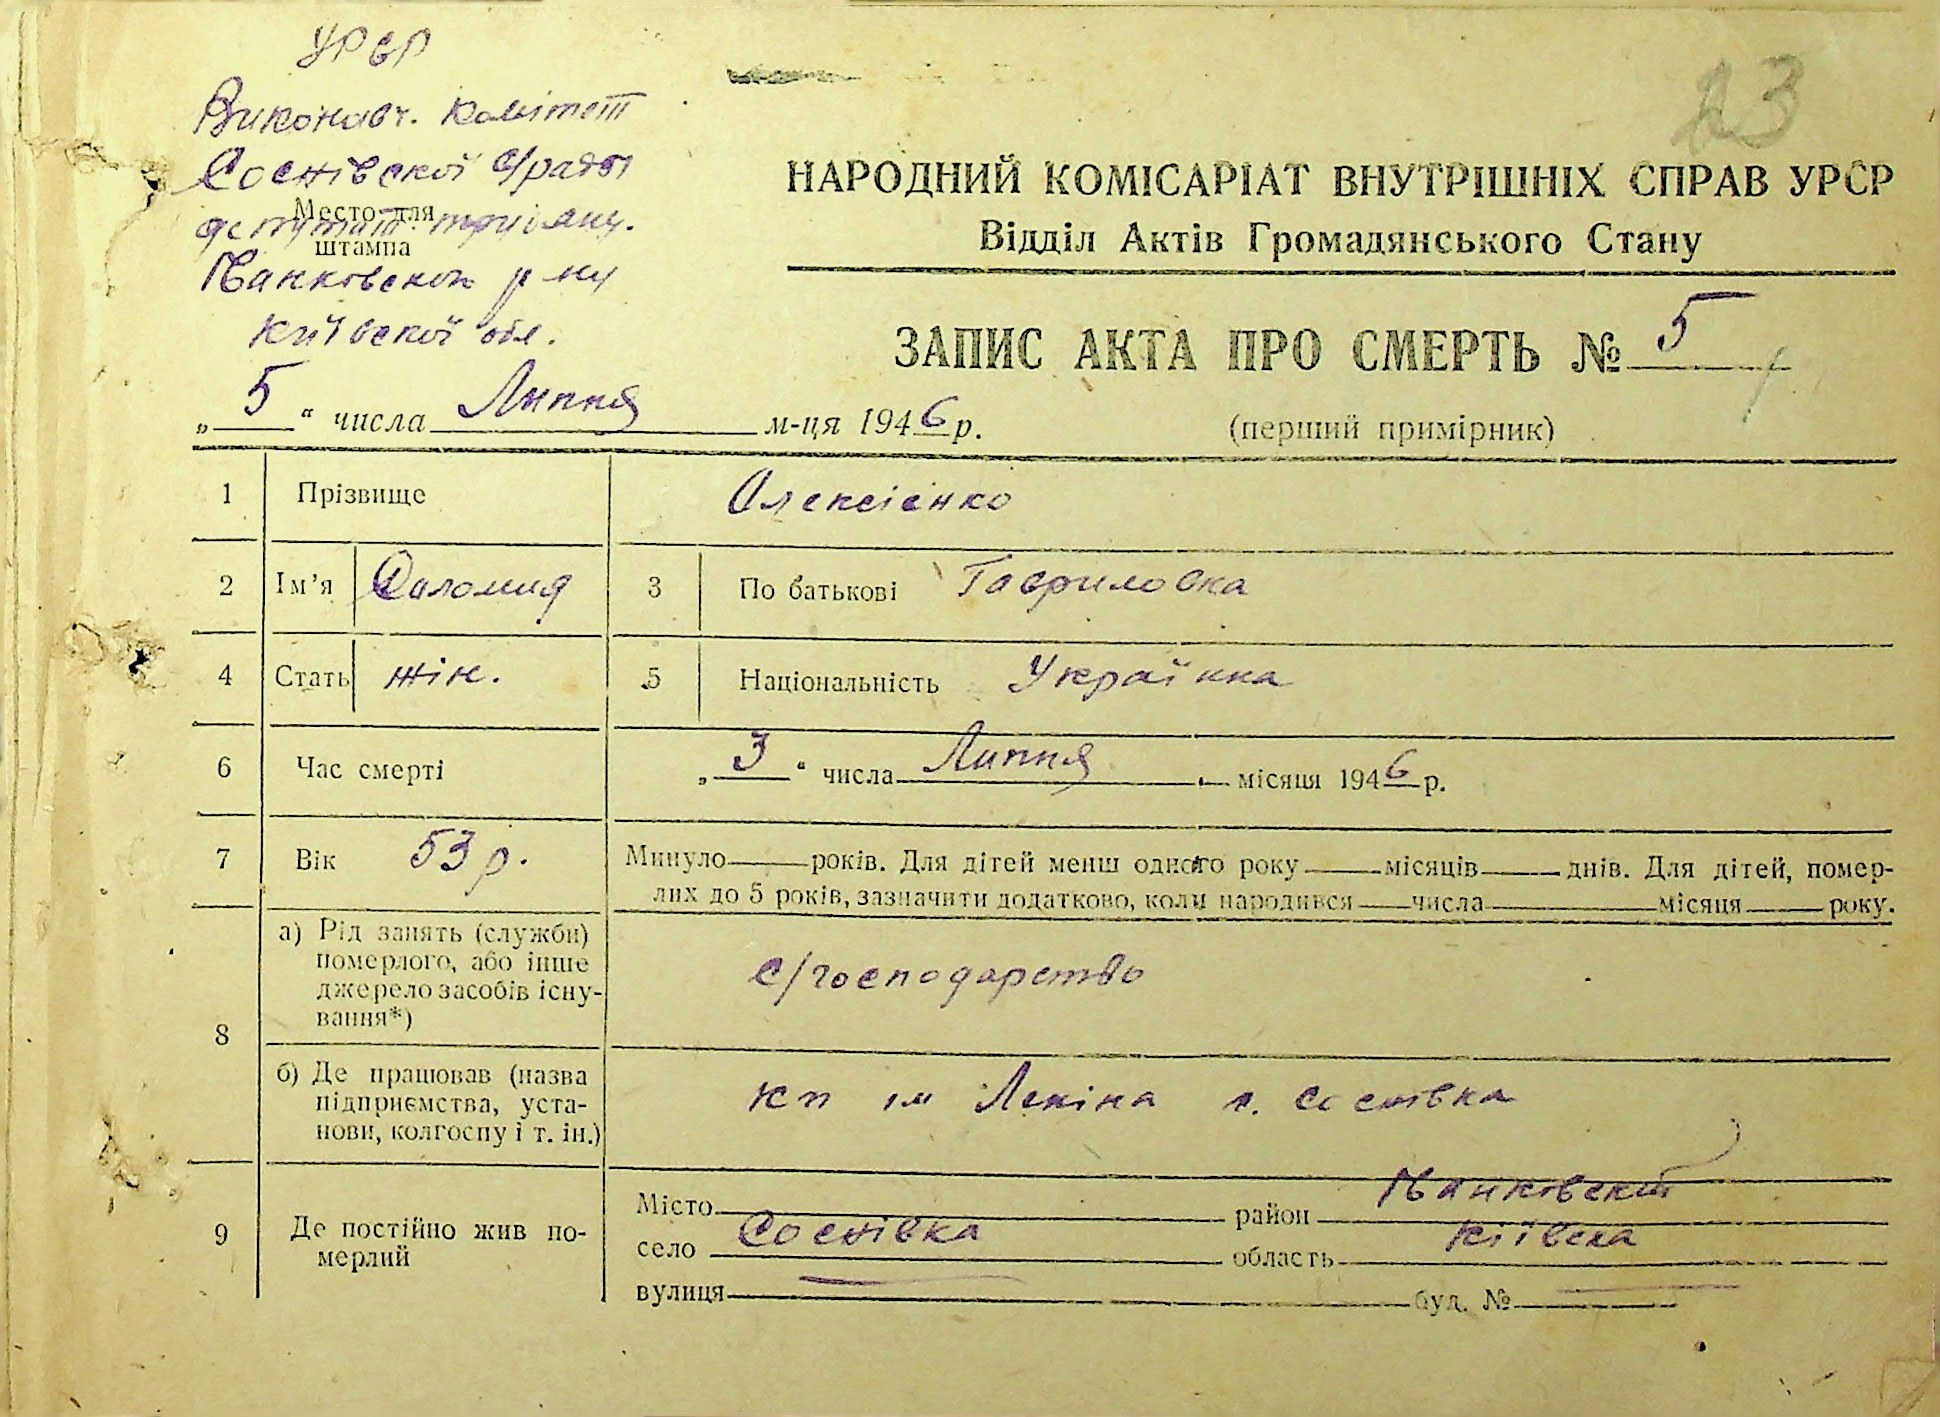 УРСР
Виконавч. комітет
Соснівскої с/ради
Место для
депутат. трудящ.
штампа
Маньківского р-ну
Київскої обл.
23
НАРОДНИЙ КОМІСАРІАТ ВНУТРІШНІХ СПРАВ УРСР
Відділ Актів Громадянського Стану
ЗАПИС АКТА ПРО СМЕРТЬ № 5
„ 5 “ числа Липня м-ця 1946 р.
(перший примірник)
1 Прізвище Олексієнко
2 Ім'я Соломия 3 По батькові Гавриловка
4 Стать жін. 5 Національність Українка
6 Час смерті „ 3 “ числа Липня місяця 1946 р.
7 Вік 53 р. Минуло років. Для дітей менш одного року місяців днів. Для дітей, помер-
лих до 5 років, зазначити додатково, коли народився числа місяця року.
8 а) Рід занять (служби)
померлого, або інше
джерело засобів існу-
вання*)
с/господарство
б) Де працював (назва
підприємства, уста-
нови, колгоспу і т. ін.)
кп ім Леніна с. Соснівка
9 Де постійно жив по-
мерлий
Місто район Маньківский
село Соснівка область Київска
вулиця буд. №